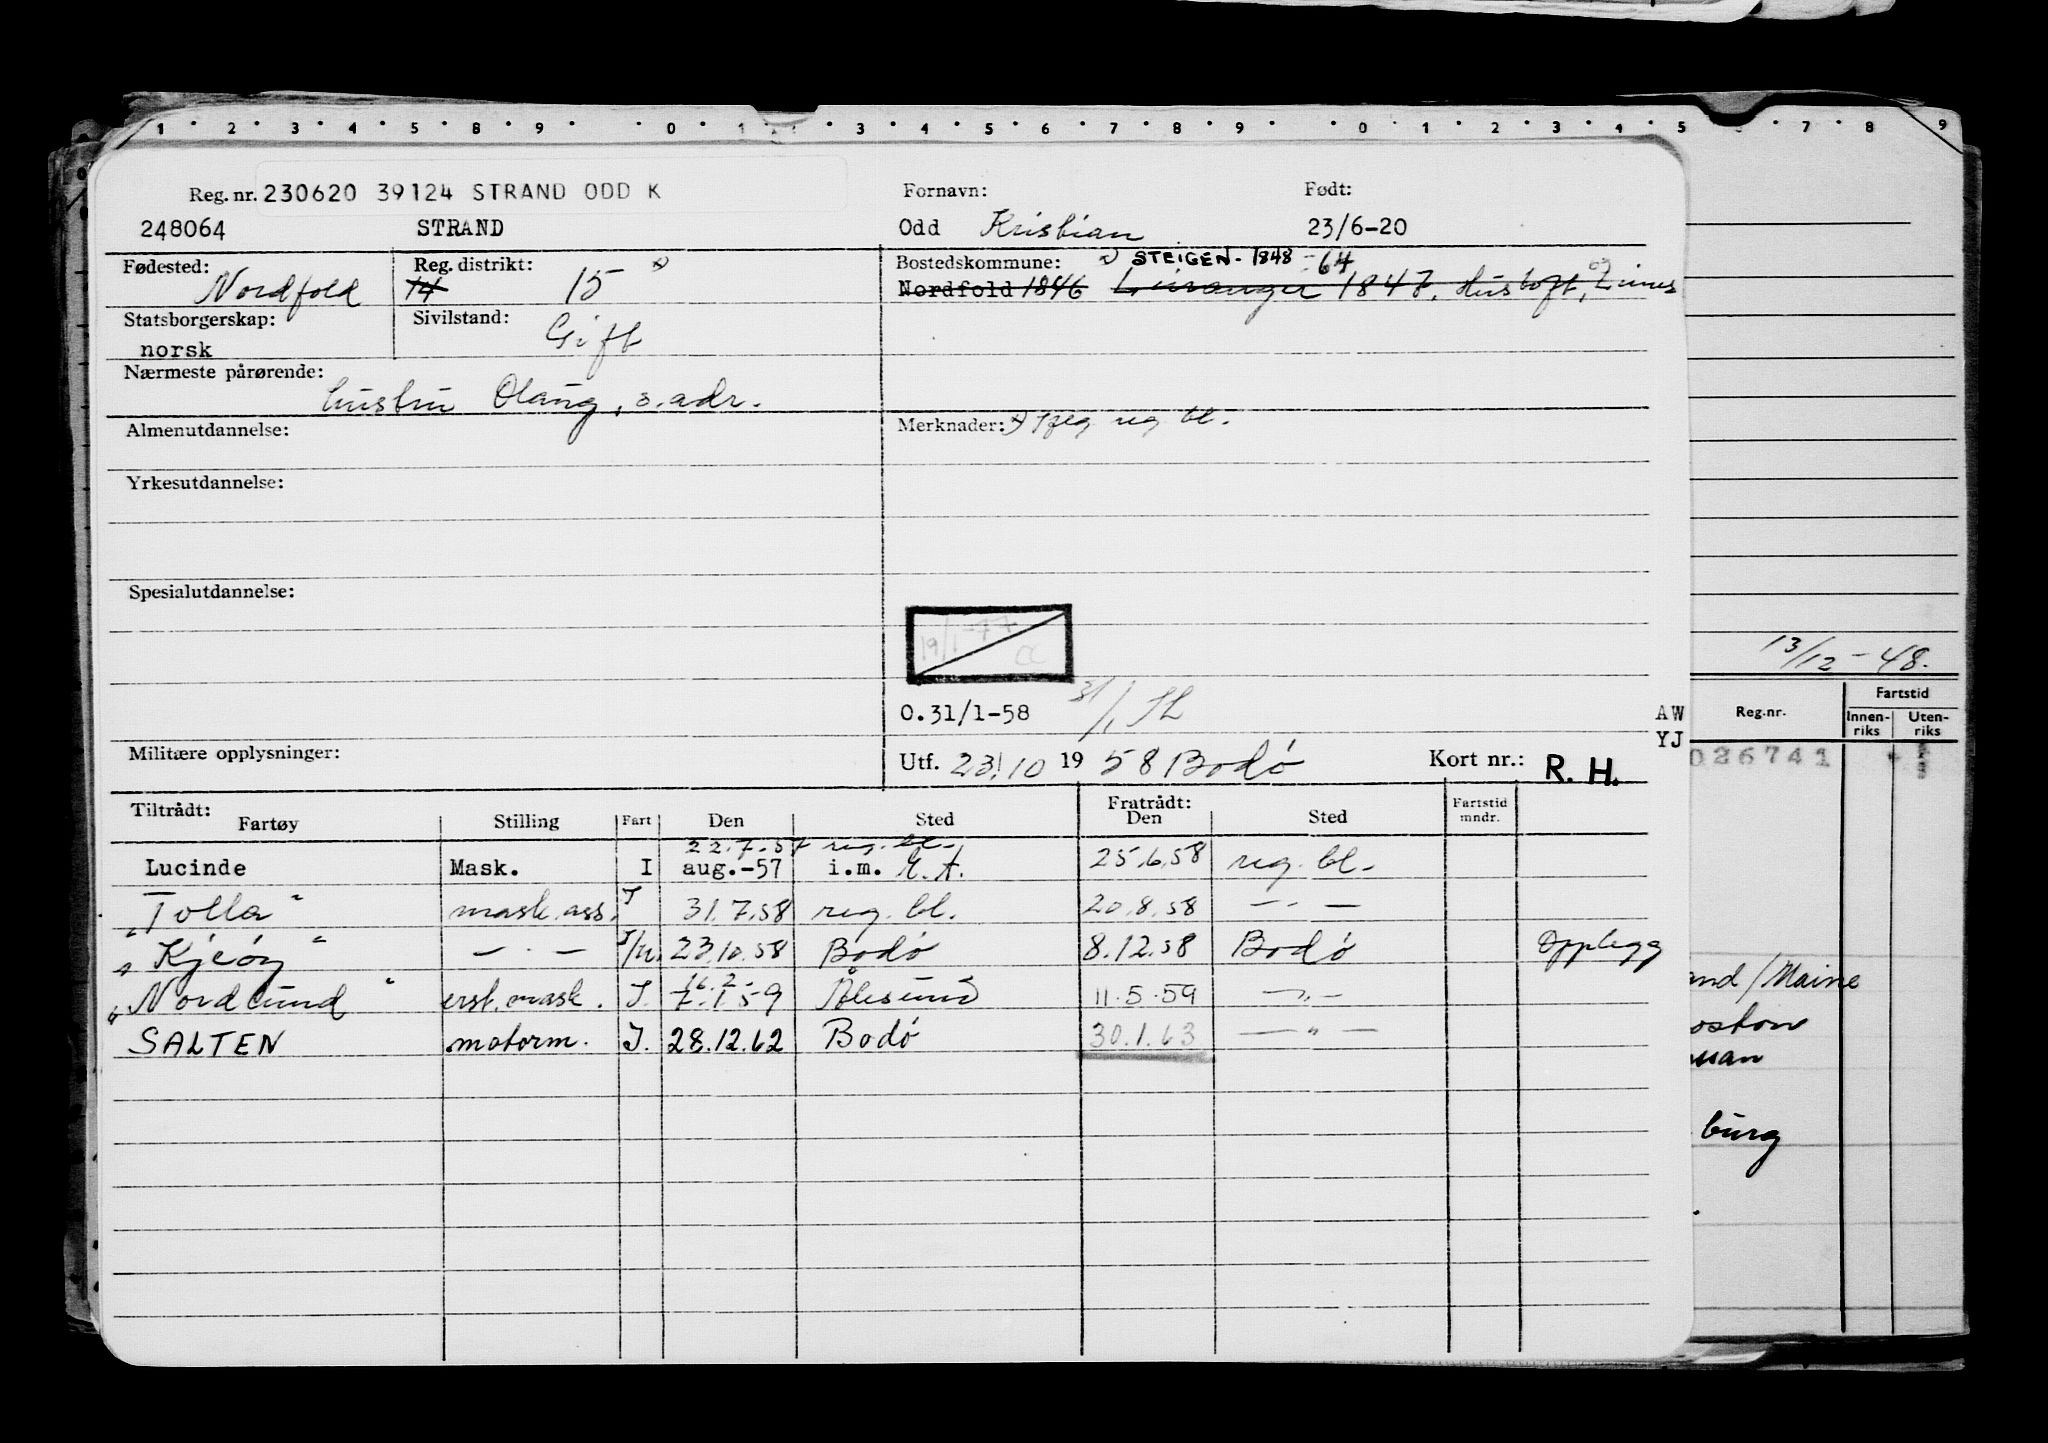 1 2 3 4 5 8 9 0 1 3 4 5 6 7 8 9 0 1 2 3 4 5 7 8 9
Reg. nr. 230620 39124 STRAND ODD K Fornavn: Født:
248064 STRAND Odd Kristian 23/6-20
Fødested: Reg. distrikt: Bostedskommune: x) STEIGEN - 1848 - 64
Nordfold 14 15 x) Nordfold 1846 Leiranger 1847, og
Statsborgerskap: Sivilstand:
norsk Gift
Nærmeste pårørende:
hustru Olaug, s. adr.
Almenutdannelse: Merknader: x) reg bl.
Yrkesutdannelse:
Spesialutdannelse:
19/1-77
CC
13/12-48.
O.31/1-58 31/1 AW Reg.nr. Fartstid
YJ Innen-riks Uten-riks
Militære opplysninger: Utf. 23/10 19 58 Bodø Kort nr.: R. H. 026741
Tiltrådt: Fratrådt:
Fartøy Stilling Fart Den Sted Den Sted Fartstid mndr.
22.7.57 reg. bl.
Lucinde Mask. I aug.-57 i.m. E.A. 25.6.58 reg. bl.
"Tolla" mask. ass. I 31.7.58 reg. bl. 20.8.58 — " —
"Kjeøy" — " — I/U. 23.10.58 Bodø 8.12.58 Bodø Opplegg
16.2.
"Nordlund" erst. mask. I. 7.1.59 Ålesund 11.5.59 — " —
SALTEN motorm. I. 28.12.62 Bodø 30.1.63 — " —
and/Maine
oston
burg